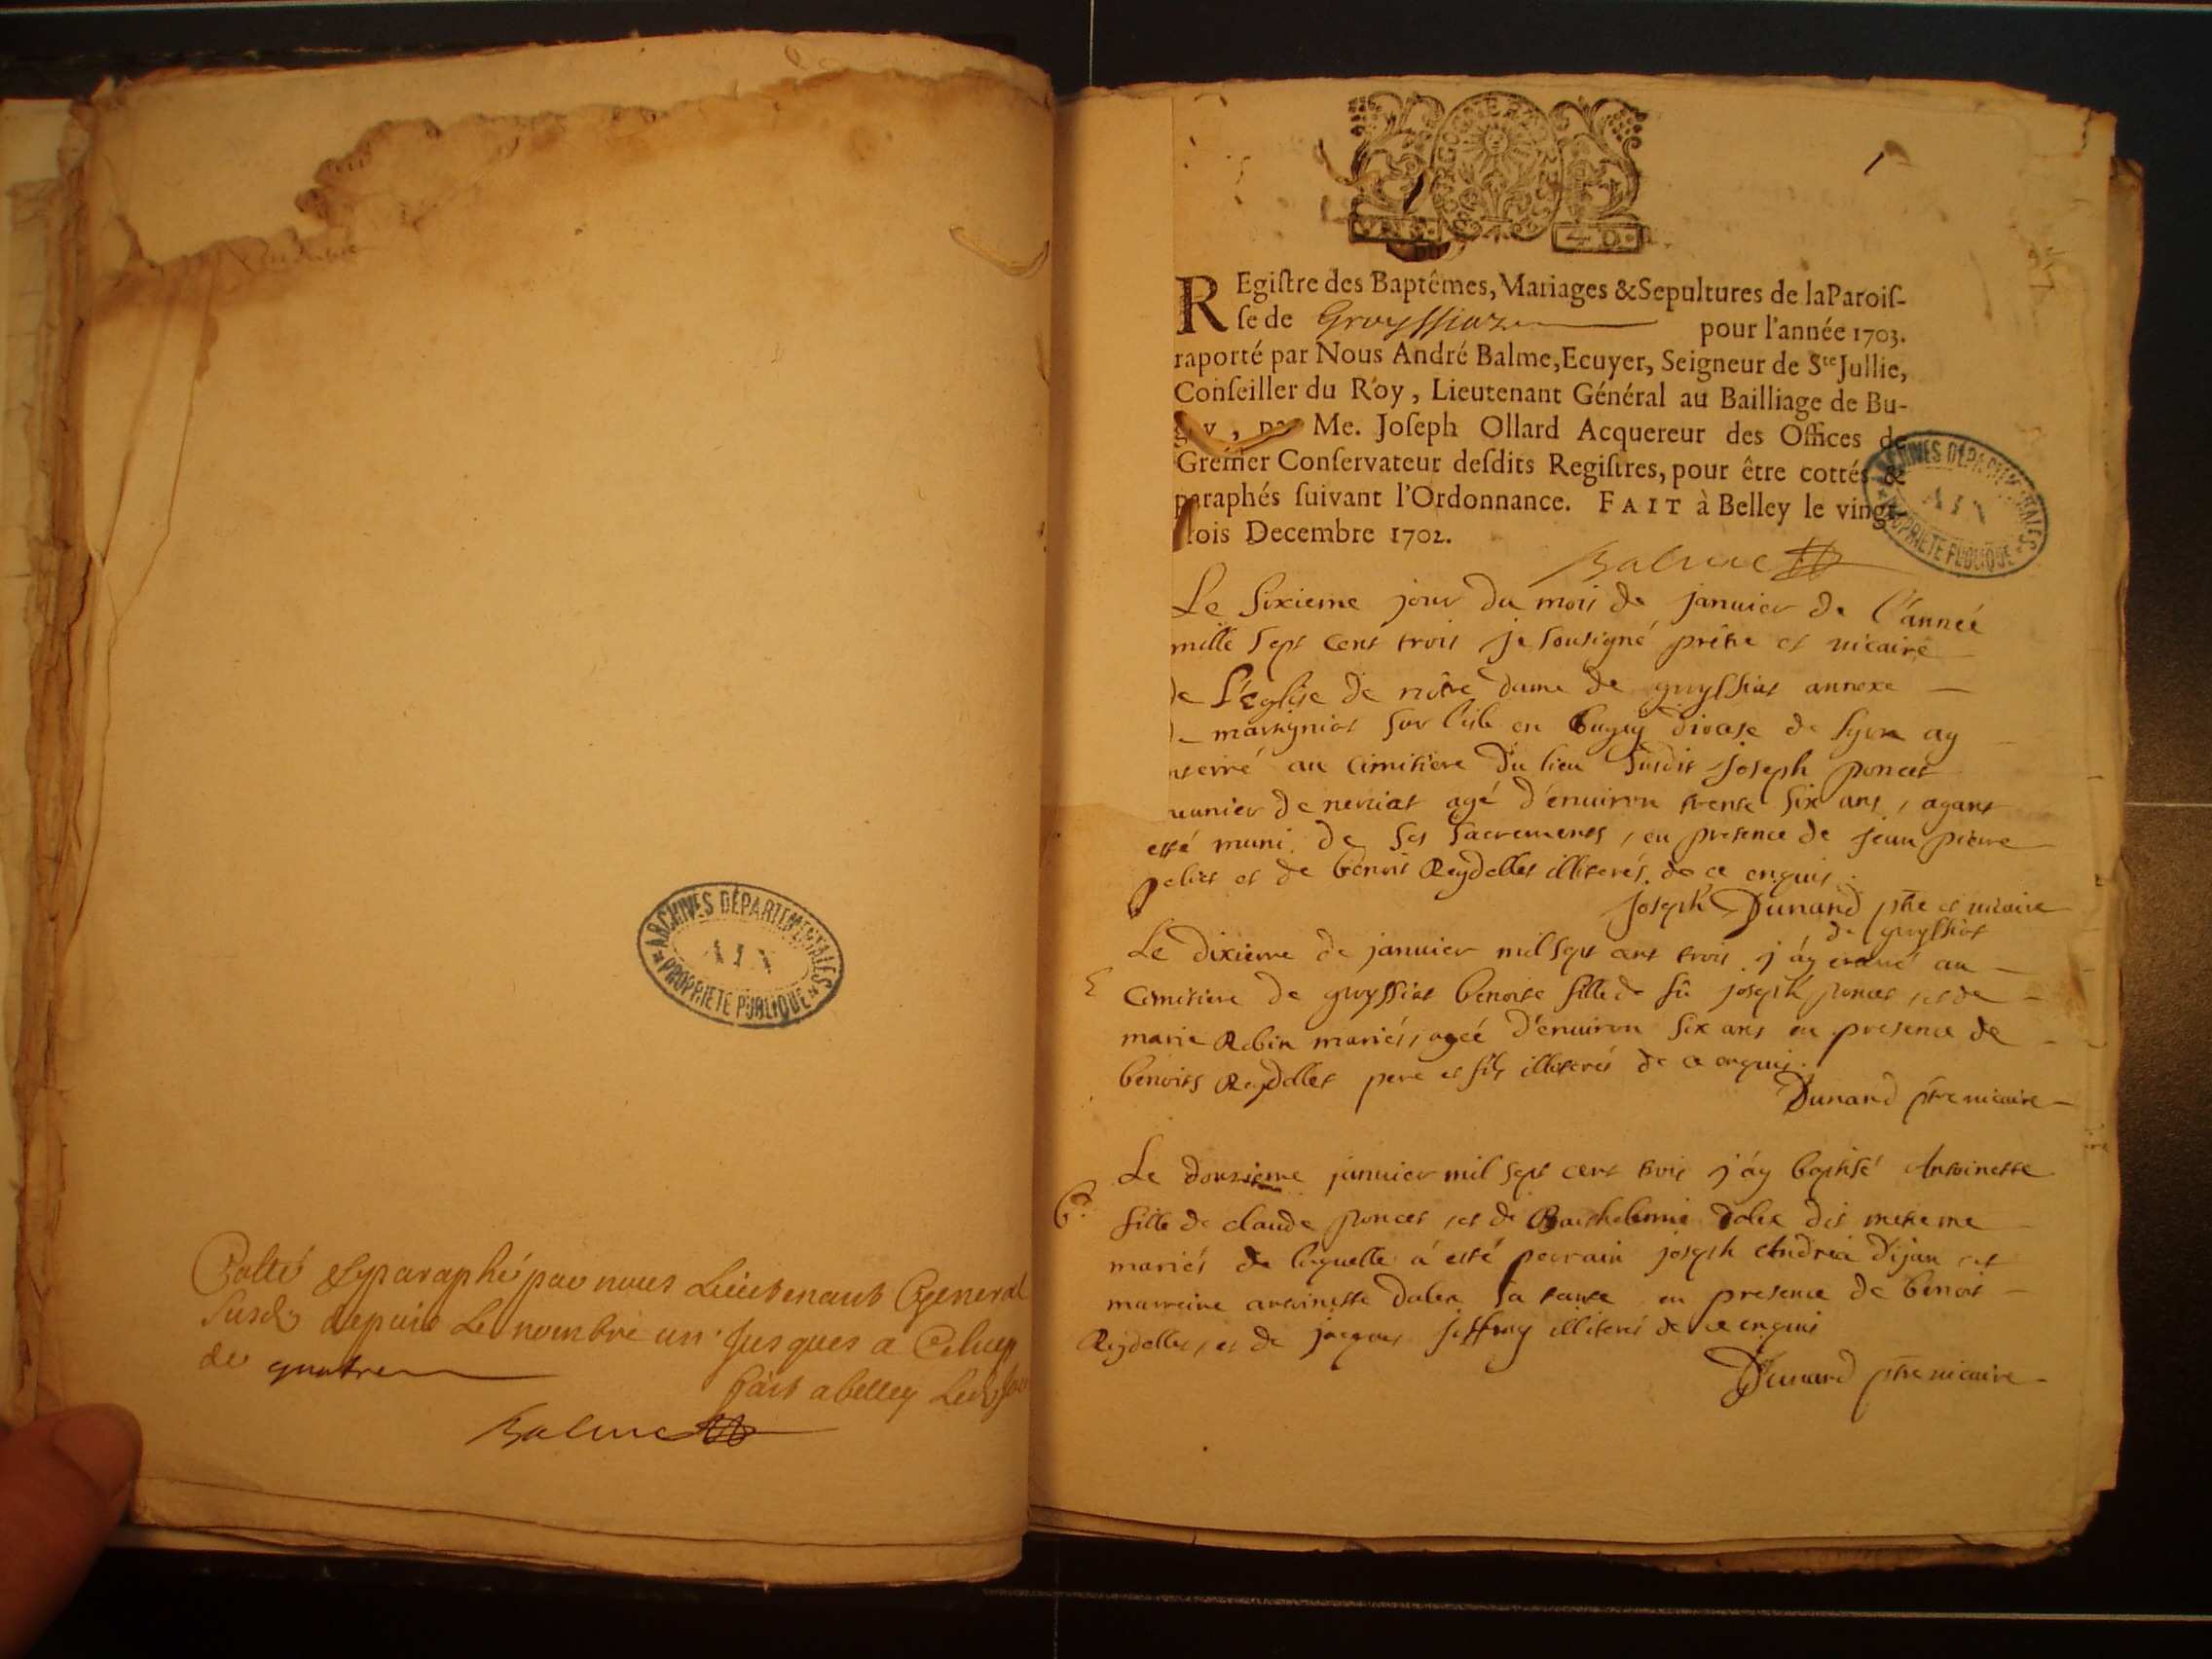 Cotté & paraphé par nous Lieutenant General
susd. depuis Le nombre un jusques a Celuy
de quatre
fait a belley Led. jour
Balme
ARCHIVES DÉPARTEMENTALES
AIN
PROPRIÉTÉ PUBLIQUE
1
REgiſtre des Baptêmes, Mariages & Sepultures de la Paroiſ-
ſe de Groyssiaz pour l'année 1703.
raporté par Nous André Balme, Ecuyer, Seigneur de Ste Jullie,
Conſeiller du Roy, Lieutenant Général au Bailliage de Bu-
gey, par Me. Joſeph Ollard Acquereur des Offices de
Greffier Conſervateur deſdits Regiſtres, pour être cottés &
paraphés ſuivant l'Ordonnance. FAIT à Belley le vingt-
trois Decembre 1702.
Balme
ARCHIVES DÉPARTEMENTALES
AIN
PROPRIÉTÉ PUBLIQUE
Le sixieme jour du mois de janvier de l'année
mille sept cent trois je sousigné prêtre et vicaire
de l'Eglise de nôtre dame de groyssiat annexe
de martigniat sur l'isle en bugey diocese de lyon ay
enterré au cimitiere du lieu susdit joseph poncet
munier de nerciat agé d'environ trente six ans, ayant
esté muni de ses sacremens, en presence de jean pierre
peliet et de benoit Reydellet illiterés de ce enquis.
joseph Dunand ptre et vicaire
de groyssiat
Le dixieme de janvier mil sept cent trois j'ay enterré au
cimitiere de groyssiat benoite fille de fû joseph poncet, et de
marie Robin mariés, ageé d'environ six ans en presence de
benoits Reydellet pere et fils illiterés de ce enquis.
Dunand ptre vicaire
Le douzieme janvier mil sept cent trois j'ay baptisé Antoinette
B.
fille de claude poncet, et de Barthelemie dalex dit
mariés de laquelle a esté parrain joseph Andrea dijan, et
marraine antoinette dalex sa tante en presence de benoit
Reydellet, et de jacques jeffray illiterés de ce enquis
Dunand ptre vicaire